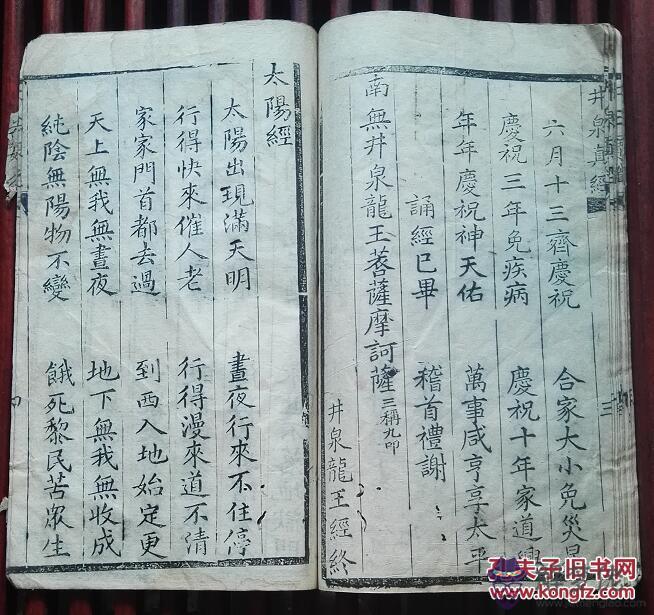 井泉真經
六月十三齊慶祝 合家大小免災
慶祝三年免疾病 慶祝十年家道
年年慶祝神天佑 萬事咸亨享太平
誦經已畢 稽首禮謝
南無井泉龍王菩薩摩訶薩 三稱九叩
井泉龍王經終
三
太陽經
太陽出現滿天明 晝夜行來不住停
行得快來催人老 行得漫來道不清
家家門首都去過 到西入地始定更
天上無我無晝夜 地下無我無收成
純陰無陽物不變 餓死黎民苦眾生
孔夫子旧书网